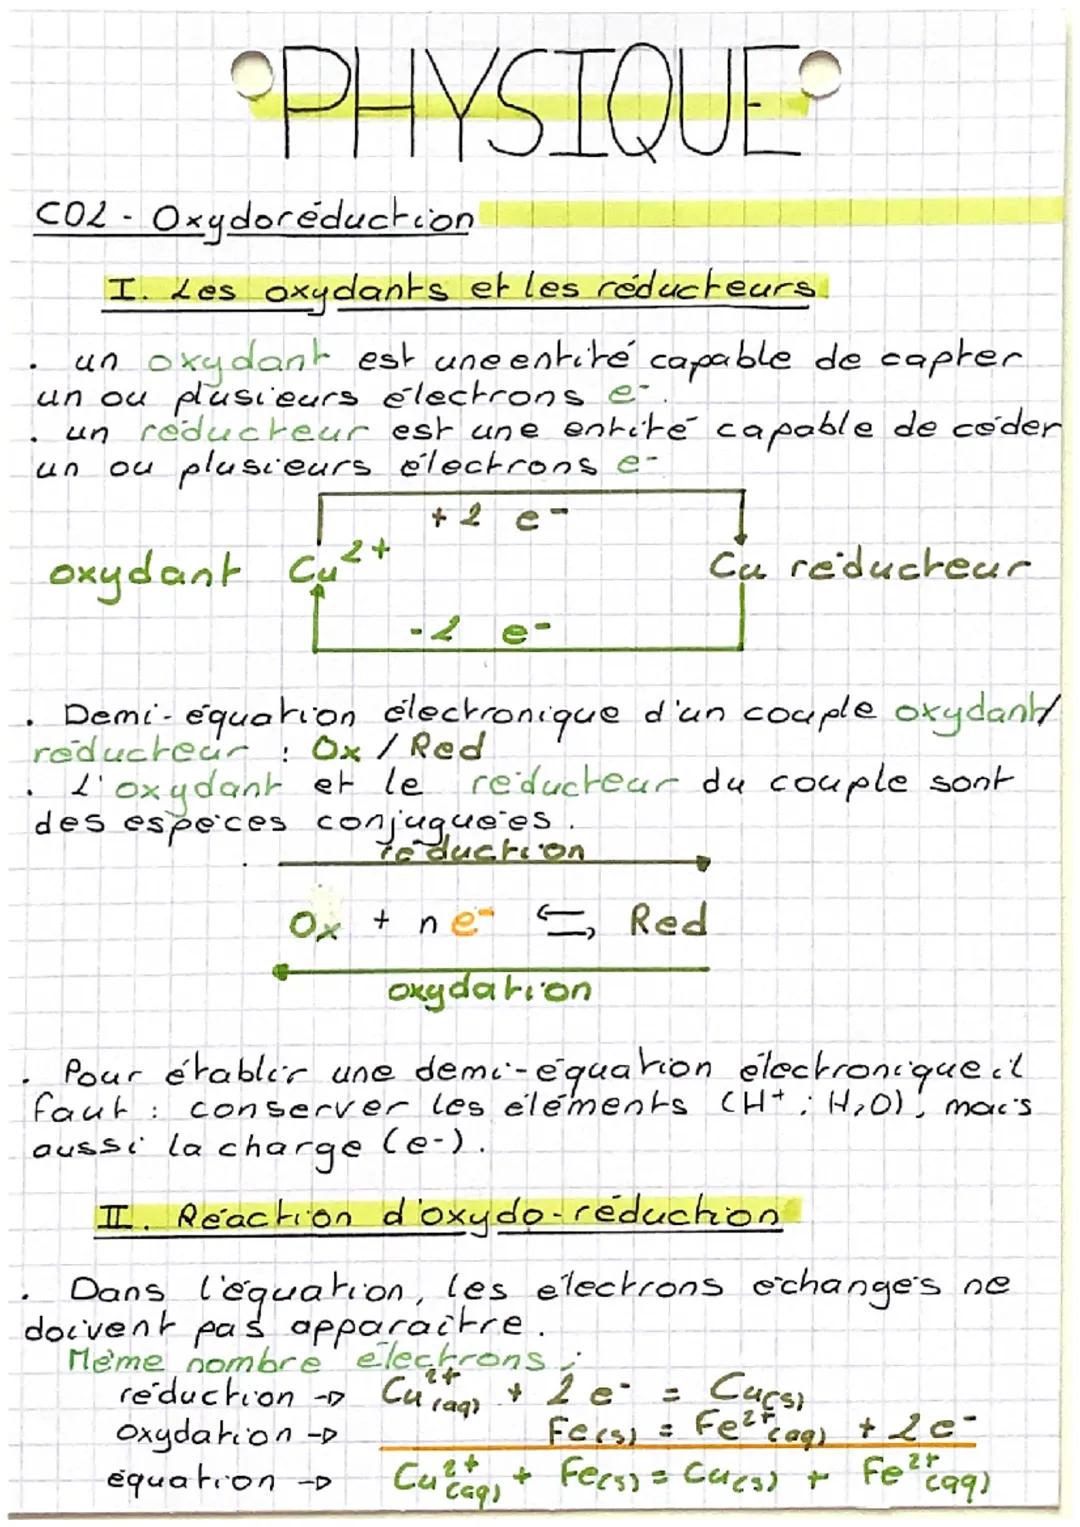 PHYSIQUE
CO2 - Oxydoréduction
I. Les oxydants et les réducteurs
. un oxydant est une entité capable de capter
un ou plusieurs électrons e-.
. un réducteur est une entité capable de céder
un ou plusieurs électrons e-
+ 2 e-
oxydant Cu²⁺ Cu réducteur
- 2 e-
. Demi-équation électronique d'un couple oxydant/
réducteur : Ox / Red
. L'oxydant et le réducteur du couple sont
des espèces conjuguées.
réduction
Ox + n e- ⇆ Red
oxydation
. Pour établir une demi-équation électronique il
faut : conserver les éléments (H+ ; H₂O), mais
aussi la charge (e-).
II. Réaction d'oxydo-réduction
. Dans l'équation, les électrons échangés ne
doivent pas apparaître.
Même nombre électrons :
réduction -> Cu²⁺(aq) + 2 e- = Cu(s)
oxydation -> Fe(s) = Fe²⁺(aq) + 2 e-
équation -> Cu²⁺(aq) + Fe(s) = Cu(s) + Fe²⁺(aq)